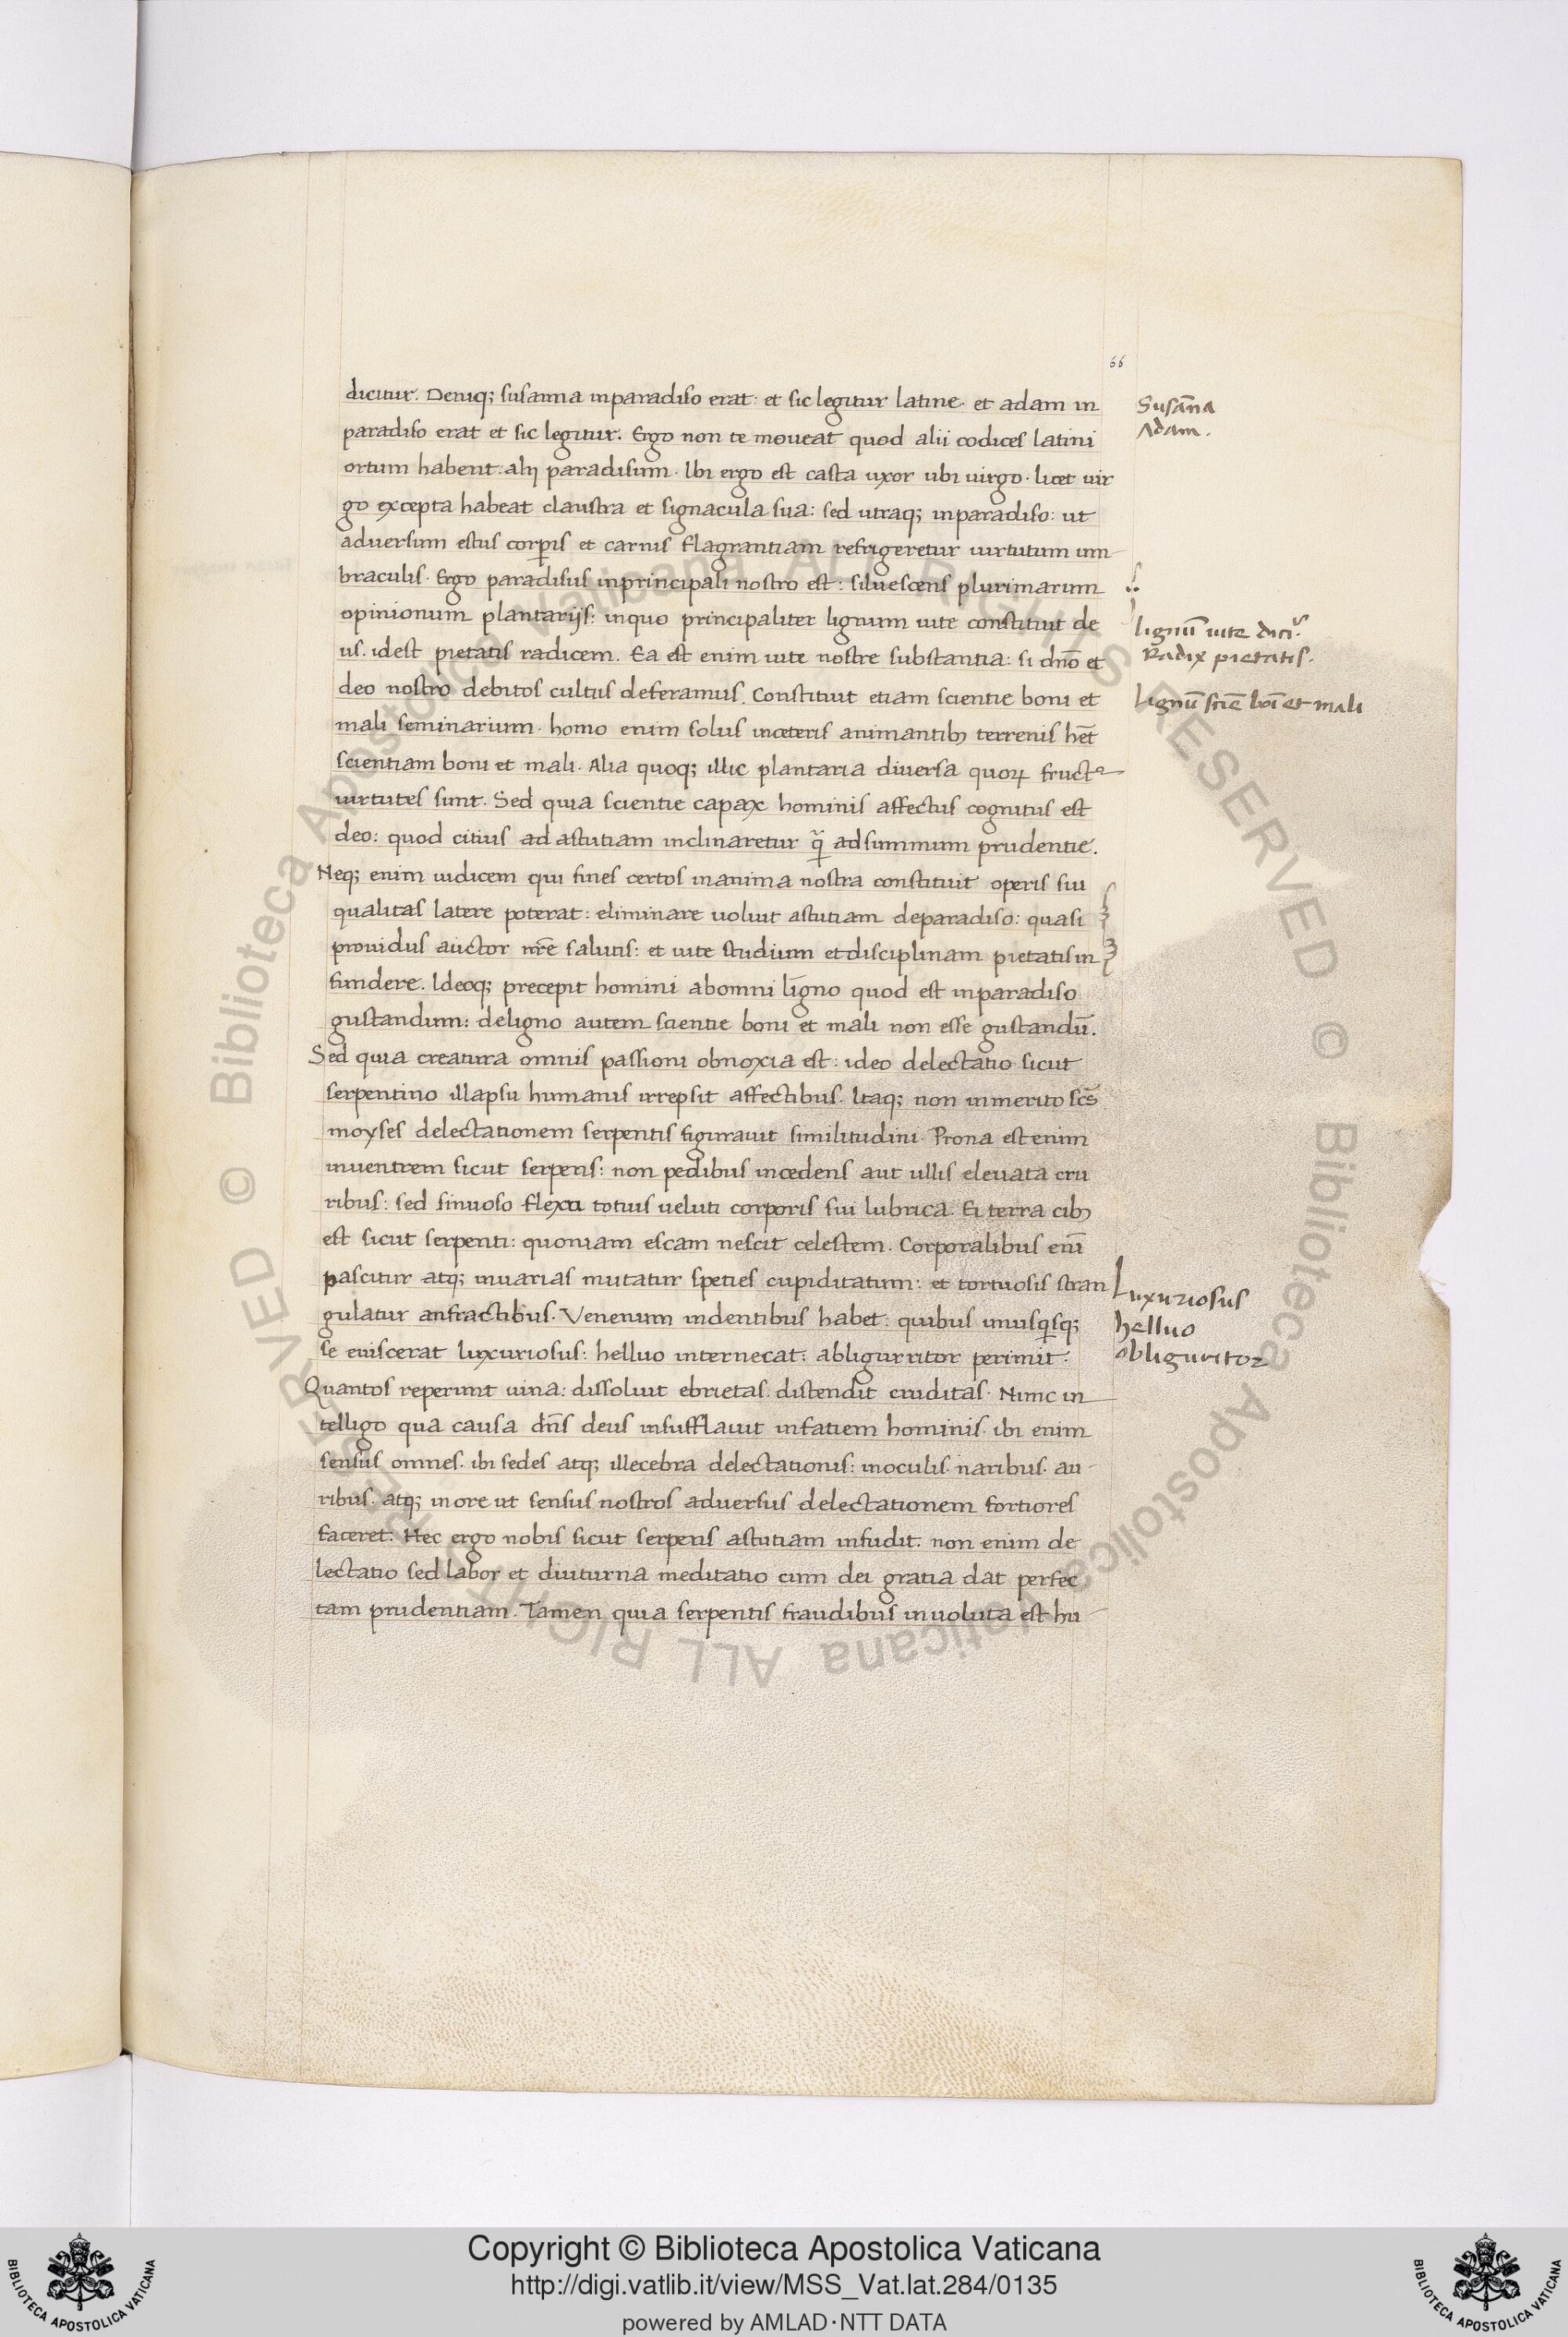 66
dicitur. Deniq; susanna inparadiso erat: et sic legitur latine. et adam in
paradiso erat et sic legitur. Ergo non te moueat quod alii codices latini
ortum habent: alij paradisum. Ibi ergo est casta uxor ubi uirgo. licet uir
go excepta habeat claustra et signacula sua: sed utraq; inparadiso: ut
aduersum estus corp̲is et carnis flagrantiam refrigeretur uirtutum um
braculis. Ergo paradisus inprincipali nostro est: siluescens plurimarum
opinionum plantarijs: inquo principaliter lignum uite constituit de
us. idest pietatis radicem. Ea est enim uite nostre substantia: si dn̄o et
deo nostro debitos cultus deferamus. Constituit etiam scientie boni et
mali seminarium. homo enim solus inceteris animantibꝫ terrenis hēt
scientiam boni et mali. Alia quoq; illic plantaria diuersa quoꝝ fructꝰ
uirtutes sunt. Sed quia scientie capax hominis affectus cognitus est
deo: quod citius ad astutiam inclinaretur q̃ adsummum prudentie.
Neq; enim iudicem qui fines certos inanima nostra constituit operis sui
qualitas latere poterat: eliminare uoluit astutiam deparadiso: quasi
prouidus auctor nr̄e salutis: et uite studium et disciplinam pietatis in
fundere. Ideoq; precepit homini abomni ligno quod est inparadiso
gustandum: deligno autem scientie boni et mali non esse gustandū.
Sed quia creatura omnis passioni obnoxia est: ideo delectatio sicut
serpentino illapsu humanis irrepsit affectibus. Itaq; non inmerito sc̄s
moyses delectationem serpentis figurauit similitudini. Prona est enim
inuentrem sicut serpens: non pedibus incedens aut ullis eleuata cru
ribus: sed sinuoso flexu totius ueluti corporis sui lubrica. Ei terra cibꝫ
est sicut serpenti: quoniam escam nescit celestem. Corporalibus enī
pascitur atq; inuarias mutatur speties cupiditatum: et tortuosis stran
gulatur anfractibus. Venenum indentibus habet: quibus unusq̲sq;
se euiscerat luxuriosus: helluo internecat: abligurritor perimit.
Quantos reperiunt uina: dissoluit ebrietas. distendit cruditas. Nunc in
telligo qua causa dn̄s deus insufflauit infatiem hominis. ibi enim
sensus omnes. ibi sedes atq; illecebra delectationis: inoculis. naribus. au
ribus. atq; in ore ut sensus nostros aduersus delectationem fortiores
faceret. Hec ergo nobis sicut serpens astutiam infudit. non enim de
lectatio sed labor et diuturna meditatio cum dei gratia dat perfec
tam prudentiam. Tamen quia serpentis fraudibus inuoluta est hu
Susāna
Adam.
lignū uite dicĩ.
Radix pietatis.
Lignū sciē boī et mali
Luxuriosus
helluo
obliguritor
Biblioteca Apostolica Vaticana ALL RIGHTS RESERVED © Biblioteca Apostolica Vaticana ALL RIGHTS RESERVED ©
BIBLIOTECA APOSTOLICA VATICANA
Copyright © Biblioteca Apostolica Vaticana
http://digi.vatlib.it/view/MSS_Vat.lat.284/0135
powered by AMLAD·NTT DATA
BIBLIOTECA APOSTOLICA VATICANA